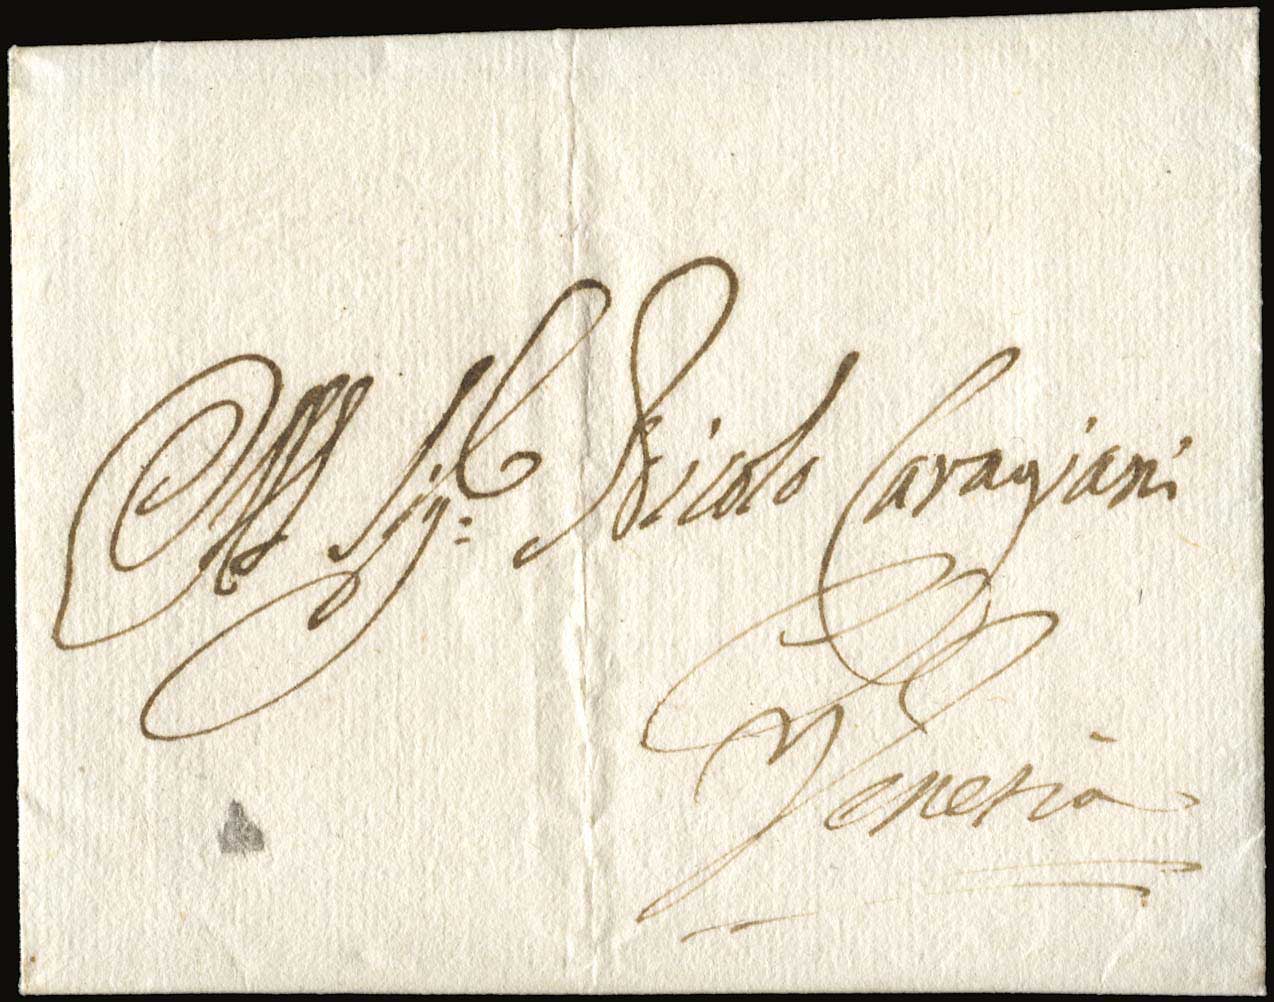 Al Sigr: Nicolo Caragiani
Venetia